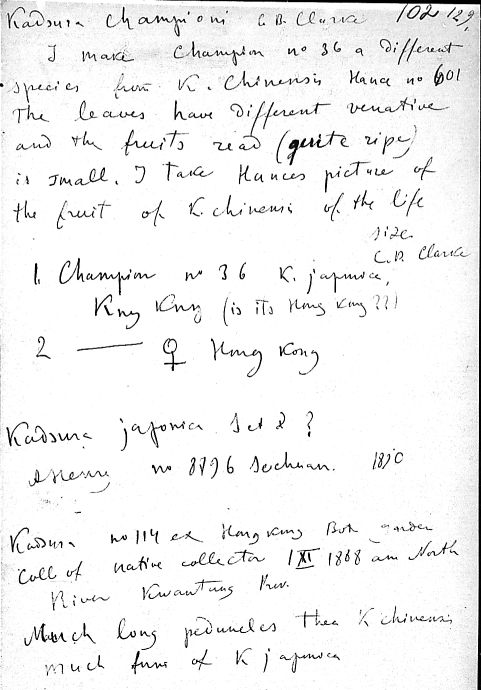 Kadsura Championi C. B. Clarke 102 129.
I make Champion no 36 a different
species from K. Chinensis Hance no 601
The leaves have different venative
and the fruits read (quite ripe)
is small. I take Hances picture of
the fruit of K. chinensis of the life
size
C. B. Clarke
1. Champion no 36 K. japonica,
Kng Kng (is its Hong Kong ??)
2 — ♀ Hong Kong
Kadsura japonica ?
AHenry no 8896 Sechuan. 1890
Kadsura no 114 ex Hongkong Bot garden
Coll of native collector 1 XI 1888 am North
River Kwantung Prov.
Much long peduncles then K chinensis
much of K japonica